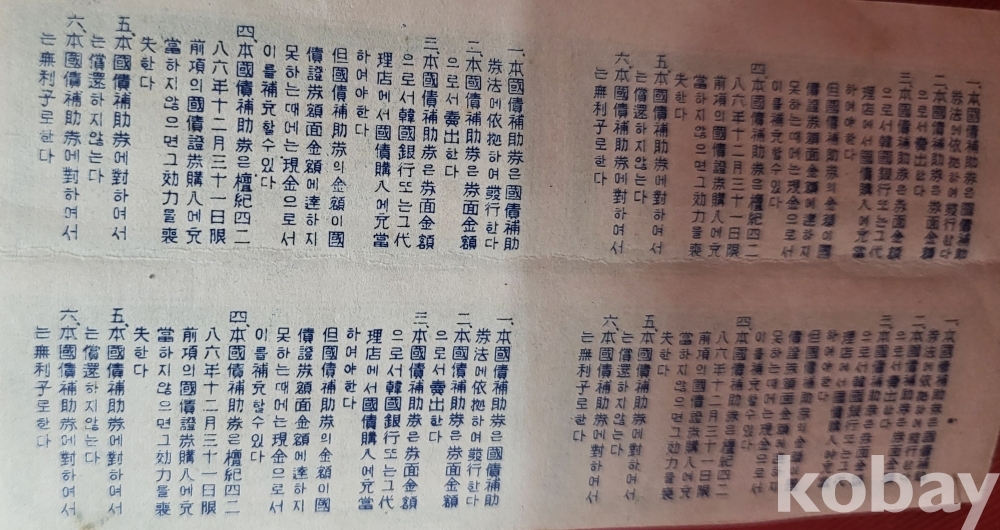 一、本國債補助券은國債補助
券法에依拠하여發行한다
二、本國債補助券은券面金額
으로서賣出한다
三、本國債補助券은券面金額
으로서韓國銀行또는그代
理店에서國債購入에充當
하여야한다
但國債補助券의金額이國
債證券額面金額에達하지
못하는때에는現金으로서
이를補充할수있다
四、本國債補助券은檀紀四二
八六年十二月三十一日限
前項의國債證券購入에充
當하지않으면그効力을喪
失한다
五、本國債補助券에對하여서
는償還하지않는다
六、本國債補助券에對하여서
는無利子로한다
一、本國債補助券은國債補助
券法에依拠하여發行한다
二、本國債補助券은券面金額
으로서賣出한다
三、本國債補助券은券面金額
으로서韓國銀行또는그代
理店에서國債購入에充當
하여야한다
但國債補助券의金額이國
債證券額面金額에達하지
못하는때에는現金으로서
이를補充할수있다
四、本國債補助券은檀紀四二
八六年十二月三十一日限
前項의國債證券購入에充
當하지않으면그効力을喪
失한다
五、本國債補助券에對하여서
는償還하지않는다
六、本國債補助券에對하여서
는無利子로한다
一、本國債補助券은國債補助
券法에依拠하여發行한다
二、本國債補助券은券面金額
으로서賣出한다
三、本國債補助券은券面金額
으로서韓國銀行또는그代
理店에서國債購入에充當
하여야한다
但國債補助券의金額이國
債證券額面金額에達하지
못하는때에는現金으로서
이를補充할수있다
四、本國債補助券은檀紀四二
八六年十二月三十一日限
前項의國債證券購入에充
當하지않으면그効力을喪
失한다
五、本國債補助券에對하여서
는償還하지않는다
六、本國債補助券에對하여서
는無利子로한다
一、本國債補助券은國債補助
券法에依拠하여發行한다
二、本國債補助券은券面金額
으로서賣出한다
三、本國債補助券은券面金額
으로서韓國銀行또는그代
理店에서國債購入에充當
하여야한다
但國債補助券의金額이國
債證券額面金額에達하지
못하는때에는現金으로서
이를補充할수있다
四、本國債補助券은檀紀四二
八六年十二月三十一日限
前項의國債證券購入에充
當하지않으면그効力을喪
失한다
五、本國債補助券에對하여서
는償還하지않는다
六、本國債補助券에對하여서
는無利子로한다
kobay